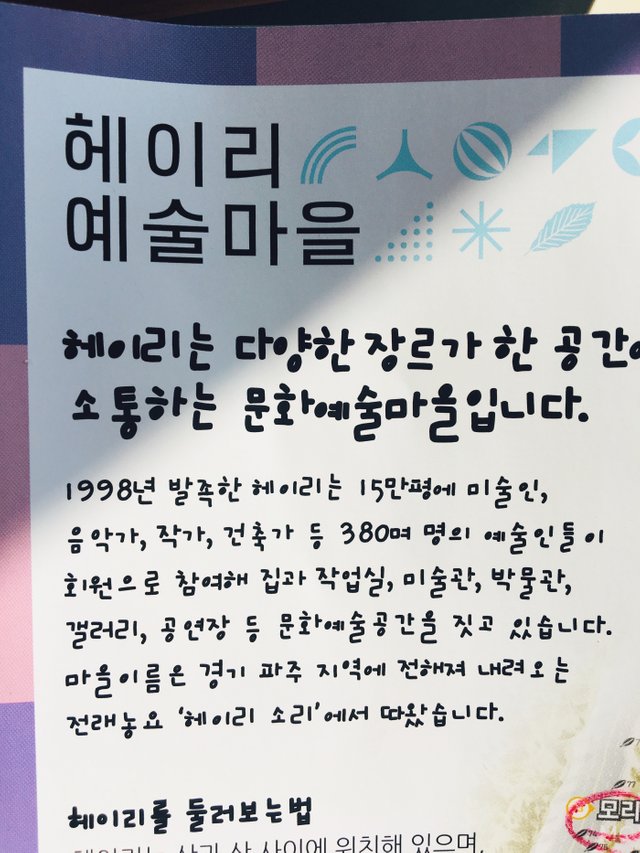 헤이리
예술마을
헤이리는 다양한 장르가 한
소통하는 문화예술마을입니다.
1998년 발족한 헤이리는 15만평에 미술인,
음악가, 작가, 건축가 등 380여 명의 예술인들이
회원으로 참여해 집과 작업실, 미술관, 박물관,
갤러리, 공연장 등 문화예술공간을 짓고 있습니다.
마을이름은 경기 파주 지역에 전해져 내려오는
전래농요 '헤이리 소리'에서 따왔습니다.
헤이리를 둘러보는법
헤이리는 산과 산 사이에 위치해 있으며,